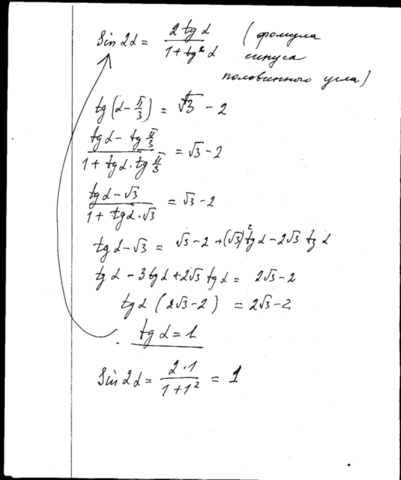 Sin 2α = 2 tg α / 1 + tg² α (формула синуса половинного угла)
tg(α - π/3) = √3 - 2
tg α - tg π/3 / 1 + tg α · tg π/3 = √3 - 2
tg α - √3 / 1 + tg α · √3 = √3 - 2
tg α - √3 = √3 - 2 + (√3)² tg α - 2√3 tg α
tg α - 3 tg α + 2√3 tg α = 2√3 - 2
tg α (2√3 - 2) = 2√3 - 2
tg α = 1
Sin 2α = 2·1 / 1 + 1² = 1